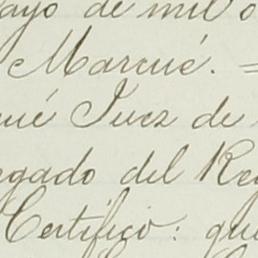 ayo de mil o
Marcué. =
ué Juez de
egado del Re
Certifico: que